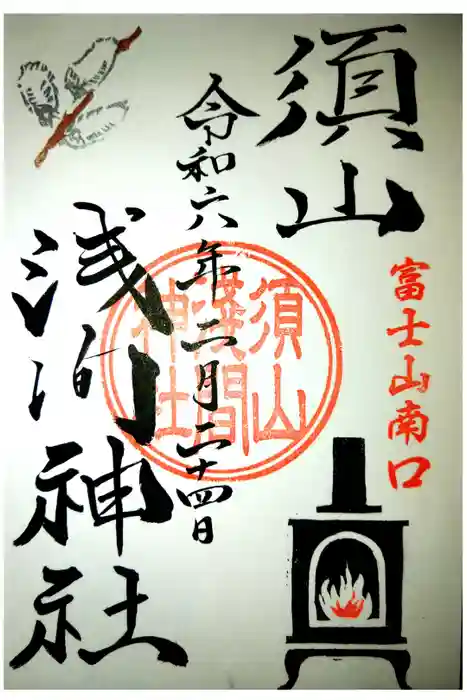 須山
富士山南口
令和六年二月二十四日
須山
淺間
神社
浅间神社